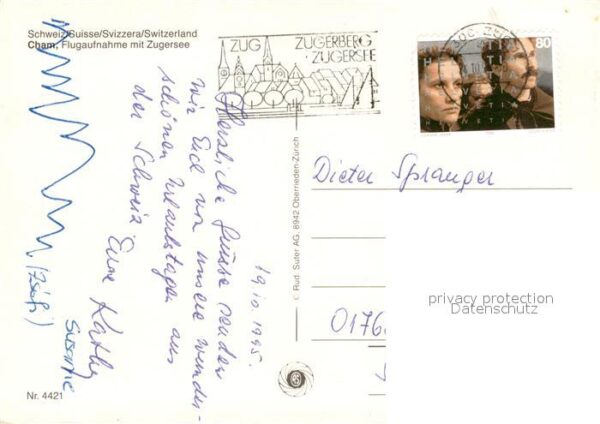 Schweiz/Suisse/Svizzera/Switzerland
Cham, Flugaufnahme mit Zugersee
ZUG ZUGERBERG
ZUGERSEE
6300 ZUG
80
19.10.1995.
Herzliche Grüsse senden
wir Euch von unseren wunder-
schönen Urlaubstagen aus
der Schweiz.
Eure Käthe
Susanne
Dieter Spranger
0176
© Rud. Suter AG, 8942 Oberrieden-Zürich
privacy protection
Datenschutz
Nr. 4421